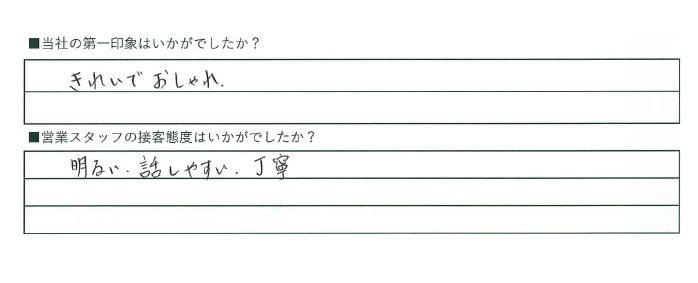 ■当社の第一印象はいかがでしたか？
きれいでおしゃれ.
■営業スタッフの接客態度はいかがでしたか？
明るい.話しやすい.丁寧